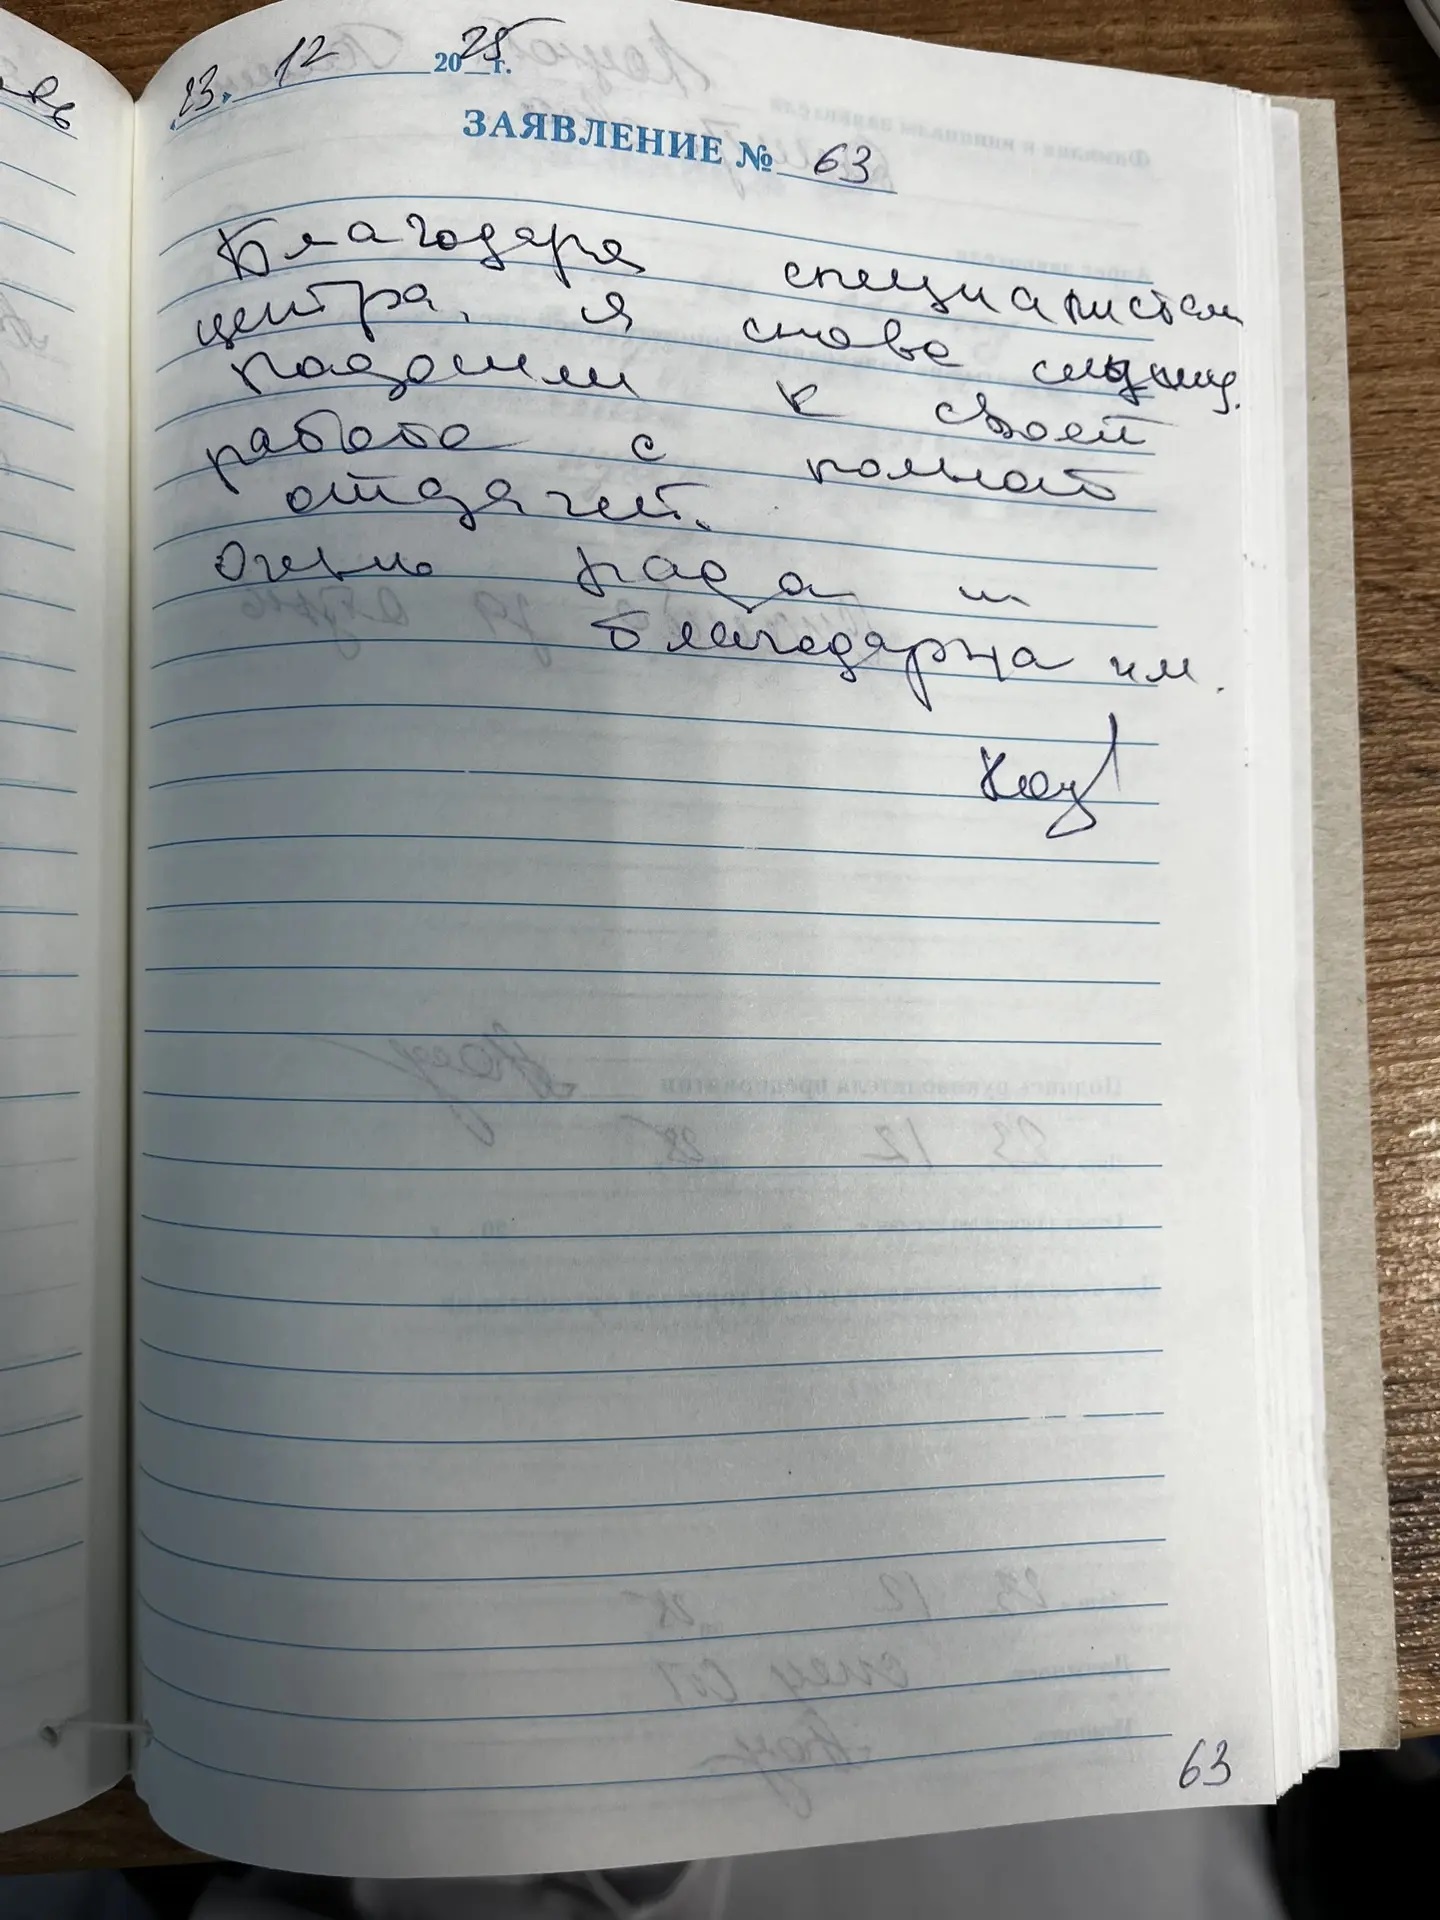 23. 12 2025 г.
ЗАЯВЛЕНИЕ № 63
Благодаря специалистам
центра, я снова слышу.
к своей
работе с полной
отдачей.
Очень рада и
благодарна им.
63